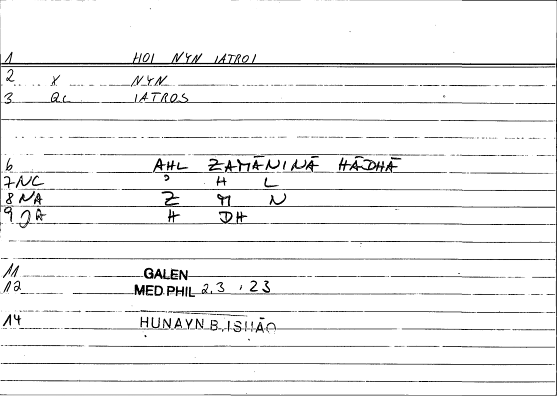 1 HOI NYN IATROI
2 X NYN
3 QC IATROS
6 AHL ZAMĀNINĀ HĀDHĀ
7 NC ʾ H L
8 NA Z M N
9 QA H DH
11 GALEN
12 MED PHIL 2.3 , 23
14 HUNAYN B. ISHĀQ